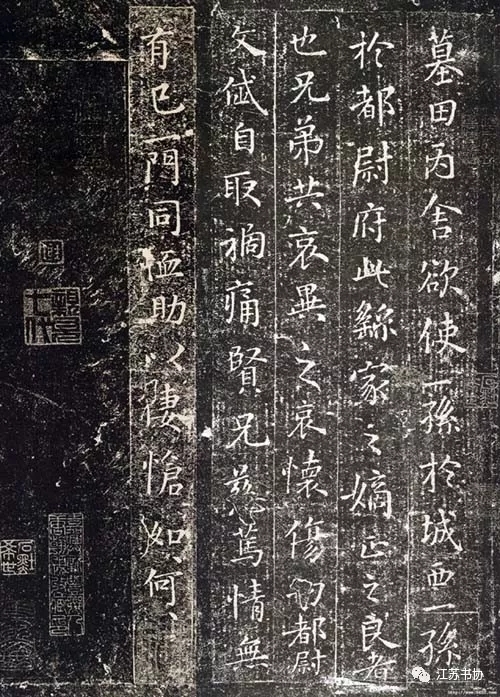 墓田丙舍欲使一孫於城西一孫
於都尉府此繇家之嫡正之良者
也兄弟共哀異之哀懷傷切都尉
文岱自取禍痛賢兄慈篤情無
有已一門同恤助以悽愴如何〻
江苏书协